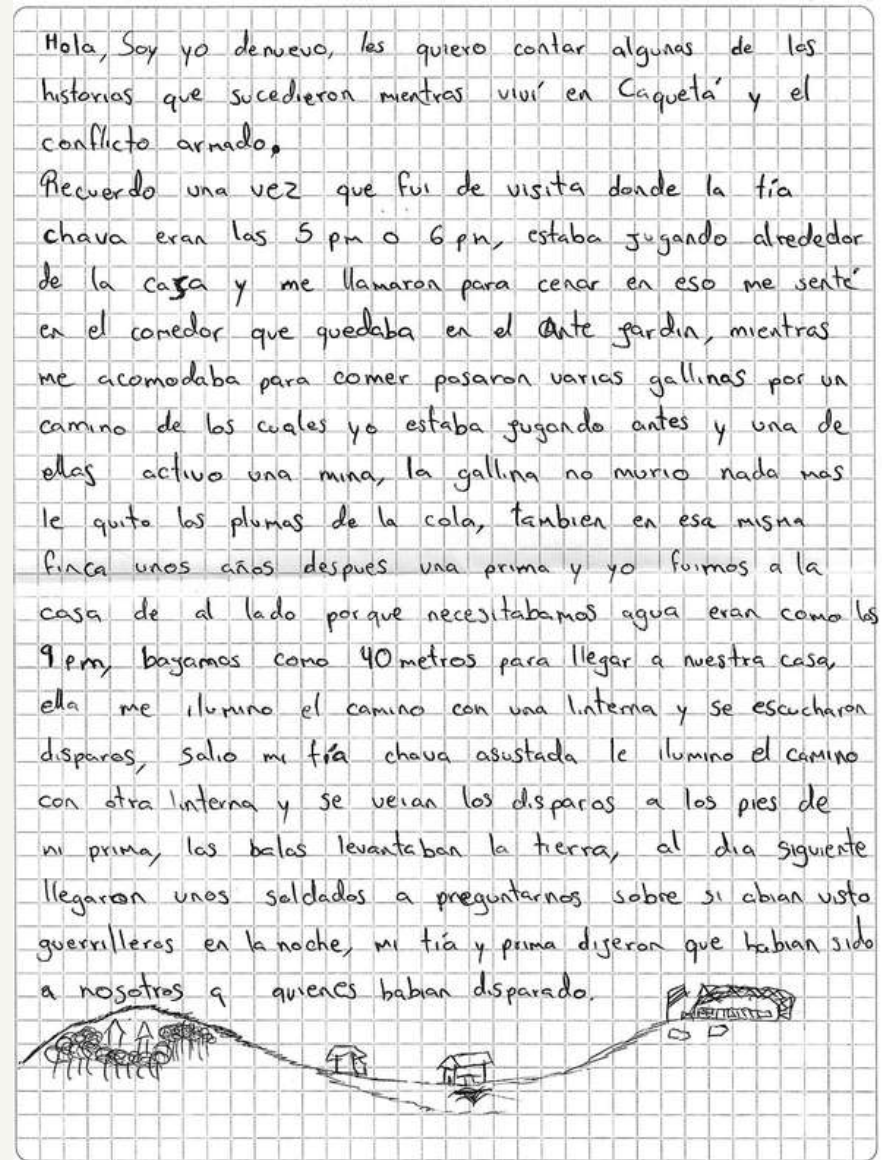 Hola, Soy yo denuevo, les quiero contar algunas de las
historias que sucedieron mientras viví en Caquetá y el
conflicto armado.
Recuerdo una vez que fui de visita donde la tía
chava eran las 5 pm o 6 pm, estaba jugando alrededor
de la casa y me llamaron para cenar en eso me senté
en el comedor que quedaba en el ante jardin, mientras
me acomodaba para comer pasaron varias gallinas por un
camino de los cuales yo estaba jugando antes y una de
ellas activo una mina, la gallina no murio nada mas
le quito las plumas de la cola, tanbien en esa misma
finca unos años despues una prima y yo fuimos a la
casa de al lado porque necesitabamos agua eran como las
9 pm, bajamos como 40 metros para llegar a nuestra casa,
ella me ilumino el camino con una linterna y se escucharon
disparos, salio mi tía chava asustada le ilumino el camino
con otra linterna y se veian los disparos a los pies de
mi prima, las balas levantaban la tierra, al dia siguiente
llegaron unos soldados a preguntarnos sobre si abian visto
guerrilleros en la noche, mi tía y prima dijeron que habian sido
a nosotros a quienes habian disparado.